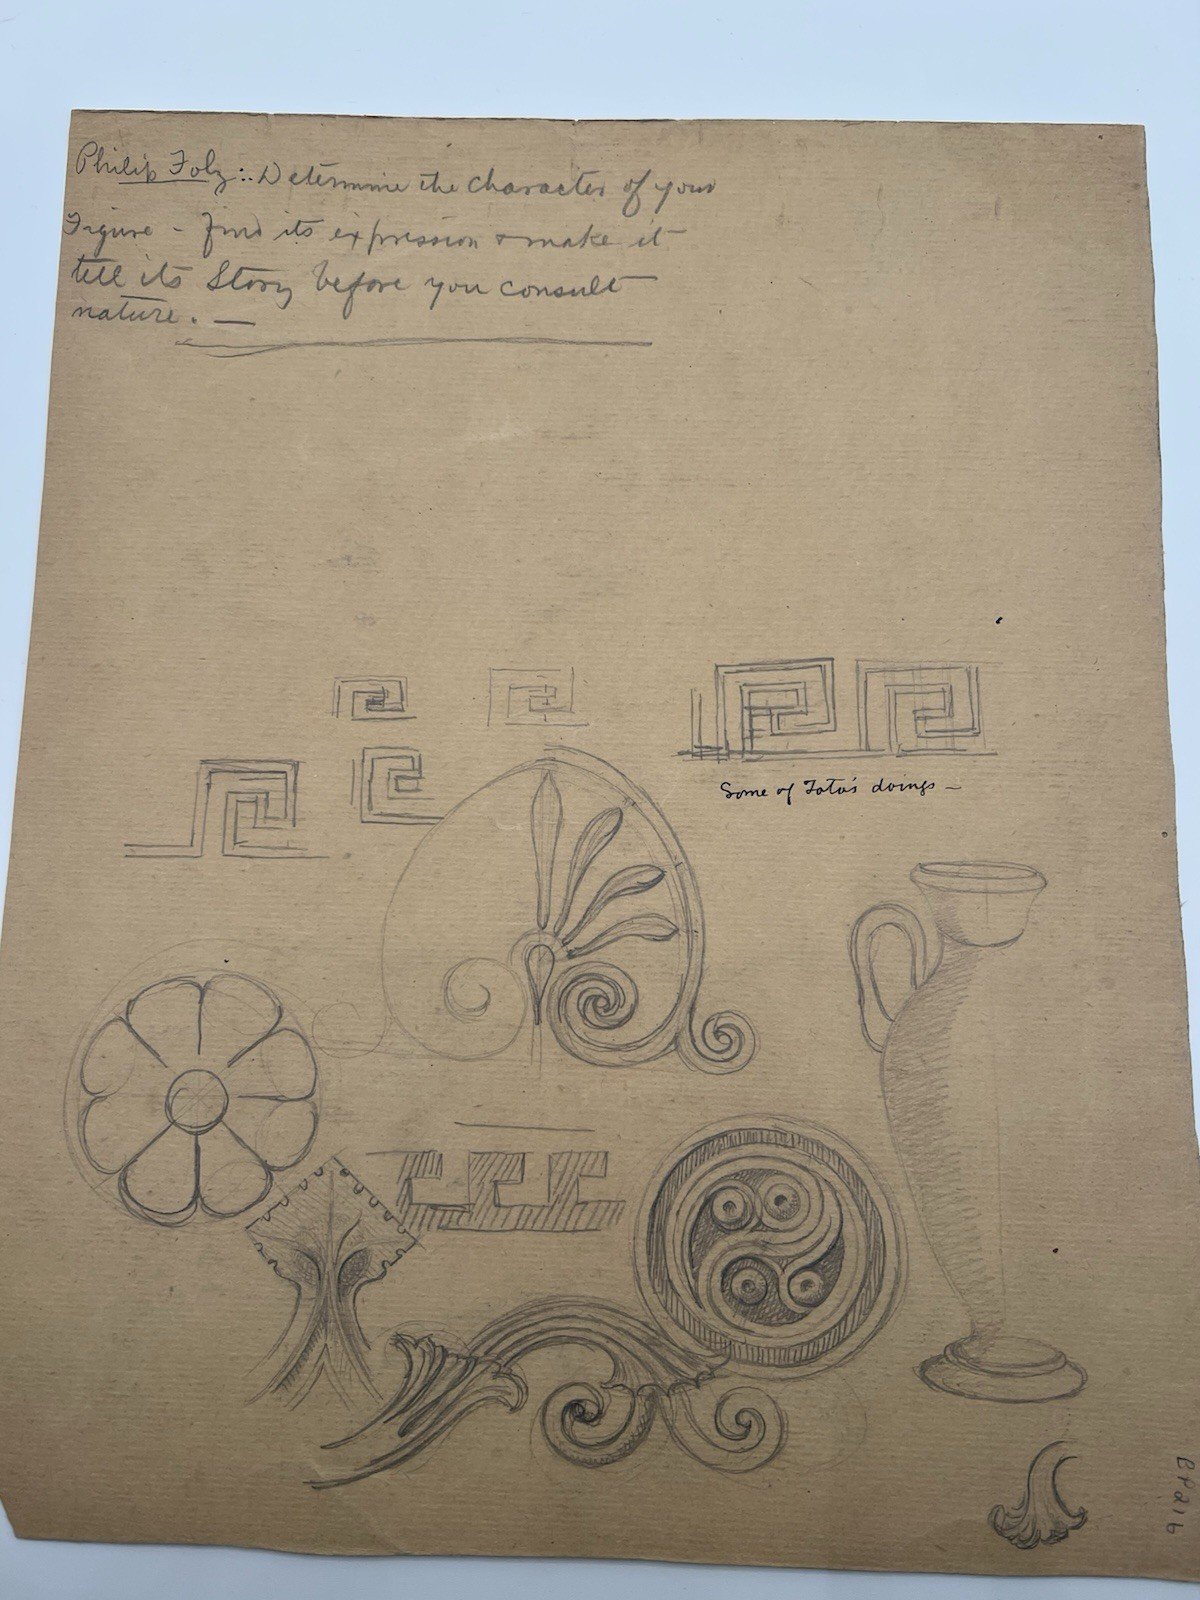 Philip Folz:. Determine the character of your
Figure - find its expression & make it
tell its Story before you consult
nature. —
Some of Toto's doings —
BP216